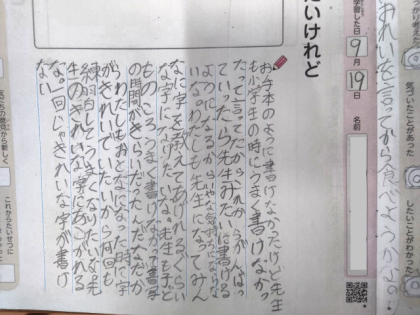 おれいを言ってから食べようかな。
学習した日
9月
19日
名前
たいけれど
お手本のように書けなかったけど先生
も小学生の時にうまく書けなかっ
たって言ってたからこれからがんばっ
ていったら先生みたいに書ける
ようになるからいやな気持ちにならな
いな。わたしも先生になってみん
なに字を教えてあげれるぐらい
な字になりたいな。先生も子ど
ものころうまく書けなかって書写
の時間がきらいだったんだなだか
らわたしもおとなになった時に字
がきれいでいたいから何回も
練習してうまくなりたいな。先
生のきれいな字にあこがれる
な。一回じゃきれいな字が書け
ない
気づいたことがあった
したいことがわかった
これからたいせつに